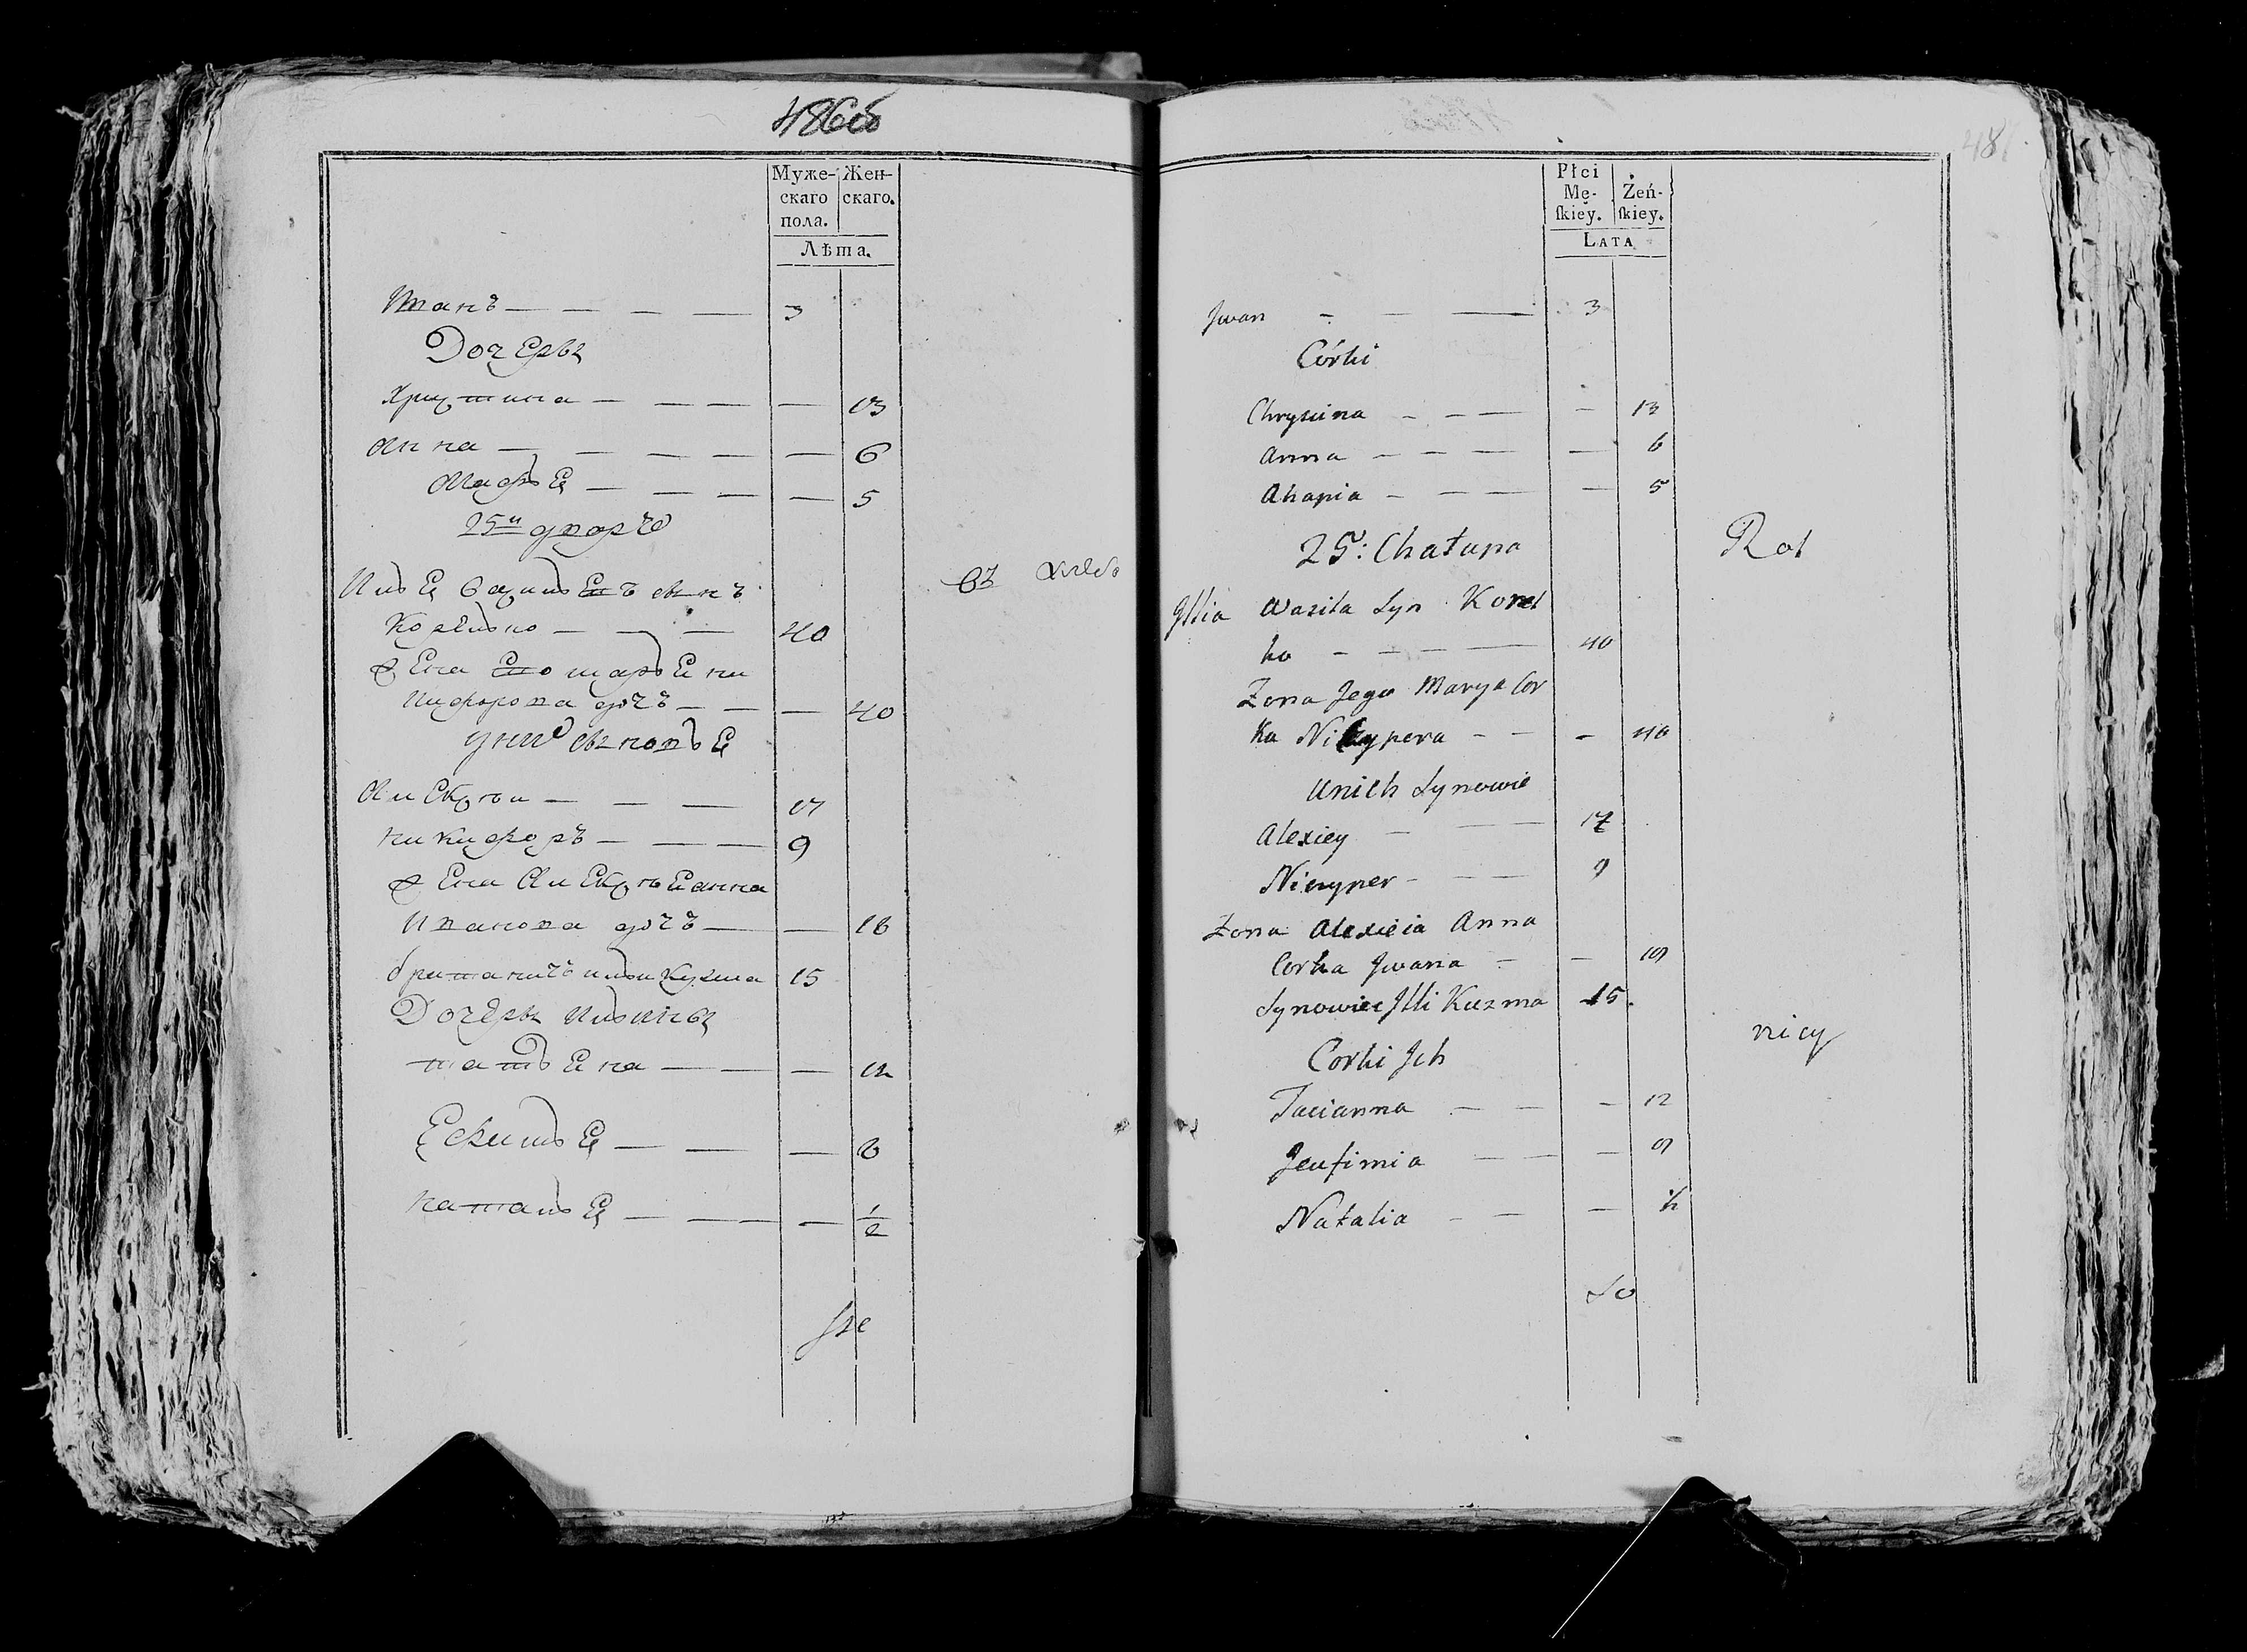 486об
Муже-
скаго
пола.
Жен-
скаго.
Лѣта.
Иванъ — — — — 3
Дочеры
Христина — — — — — 13
Анна — — — — — — 6
Агафья — — — — 5
25й дворъ
Илья Васильевъ сынъ
Корелько — — — 40
Жена его Марья
Никифорова дочъ — — — 40
У них сыновья
Алексѣй — — — 17
Никифоръ — — — 9
Жена Алексѣя Анна
Иванова дочъ — — 18
Ильи Кузма 15
Дочеры Ильины
Татьяна — — — 12
Ефимья — — — 8
Наталья — — — — 1/2
48
Płci
Mę-
ſkiey.
Żeń-
ſkiey.
LATA
Jwan - - — 3
Córki
Chrystina - - — - 13
Anna - - - — 6
Ahapia - - — - 5
25: Chałupa
Rol
Jllia Wasila Syn Korel
ko - - - — 40
Zona Jego Marya Cor
ka Nikypera - - - 40
Unich Synowie
Alexiey - — 17
Nicyper - - — 9
Zona Alexieia Anna
Corka Jwana - - 19
Synowiec Jlli Kuzma 15.
nicy
Corki Jch
Tacianna - - - 12
Jeufimia - - - 9
Natalia - - - 1/2